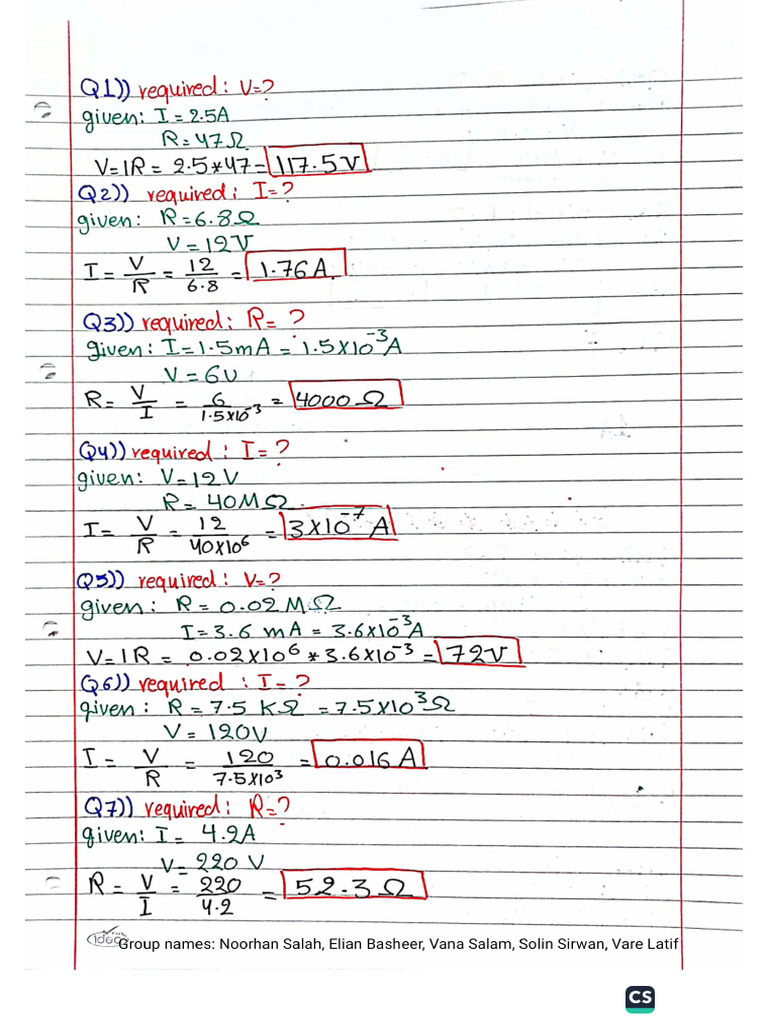 Q1)) required: V=?
given: I = 2.5A
R = 47Ω
V=IR = 2.5*47 = 117.5V
Q2)) required: I=?
given: R=6.8Ω
V=12V
I = V/R = 12/6.8 = 1.76A.
Q3)) required: R= ?
given: I=1.5mA = 1.5X10⁻³A
V=6V
R= V/I = 6/1.5X10⁻³ = 4000Ω
Q4)) required: I= ?
given: V=12V
R= 40MΩ.
I= V/R = 12/40X10⁶ = 3X10⁻⁷ A
Q5)) required: V=?
given: R=0.02MΩ
I=3.6 mA = 3.6X10⁻³A
V=IR = 0.02X10⁶ * 3.6X10⁻³ = 72V
Q6)) required : I=?
given: R=7.5 KΩ =7.5X10³Ω
V= 120V
I = V/R = 120/7.5X10³ = 0.016A
Q7)) required: R=?
given: I= 4.2A
V=220 V
R= V/I = 220/4.2 = 52.3Ω
Group names: Noorhan Salah, Elian Basheer, Vana Salam, Solin Sirwan, Vare Latif
CS